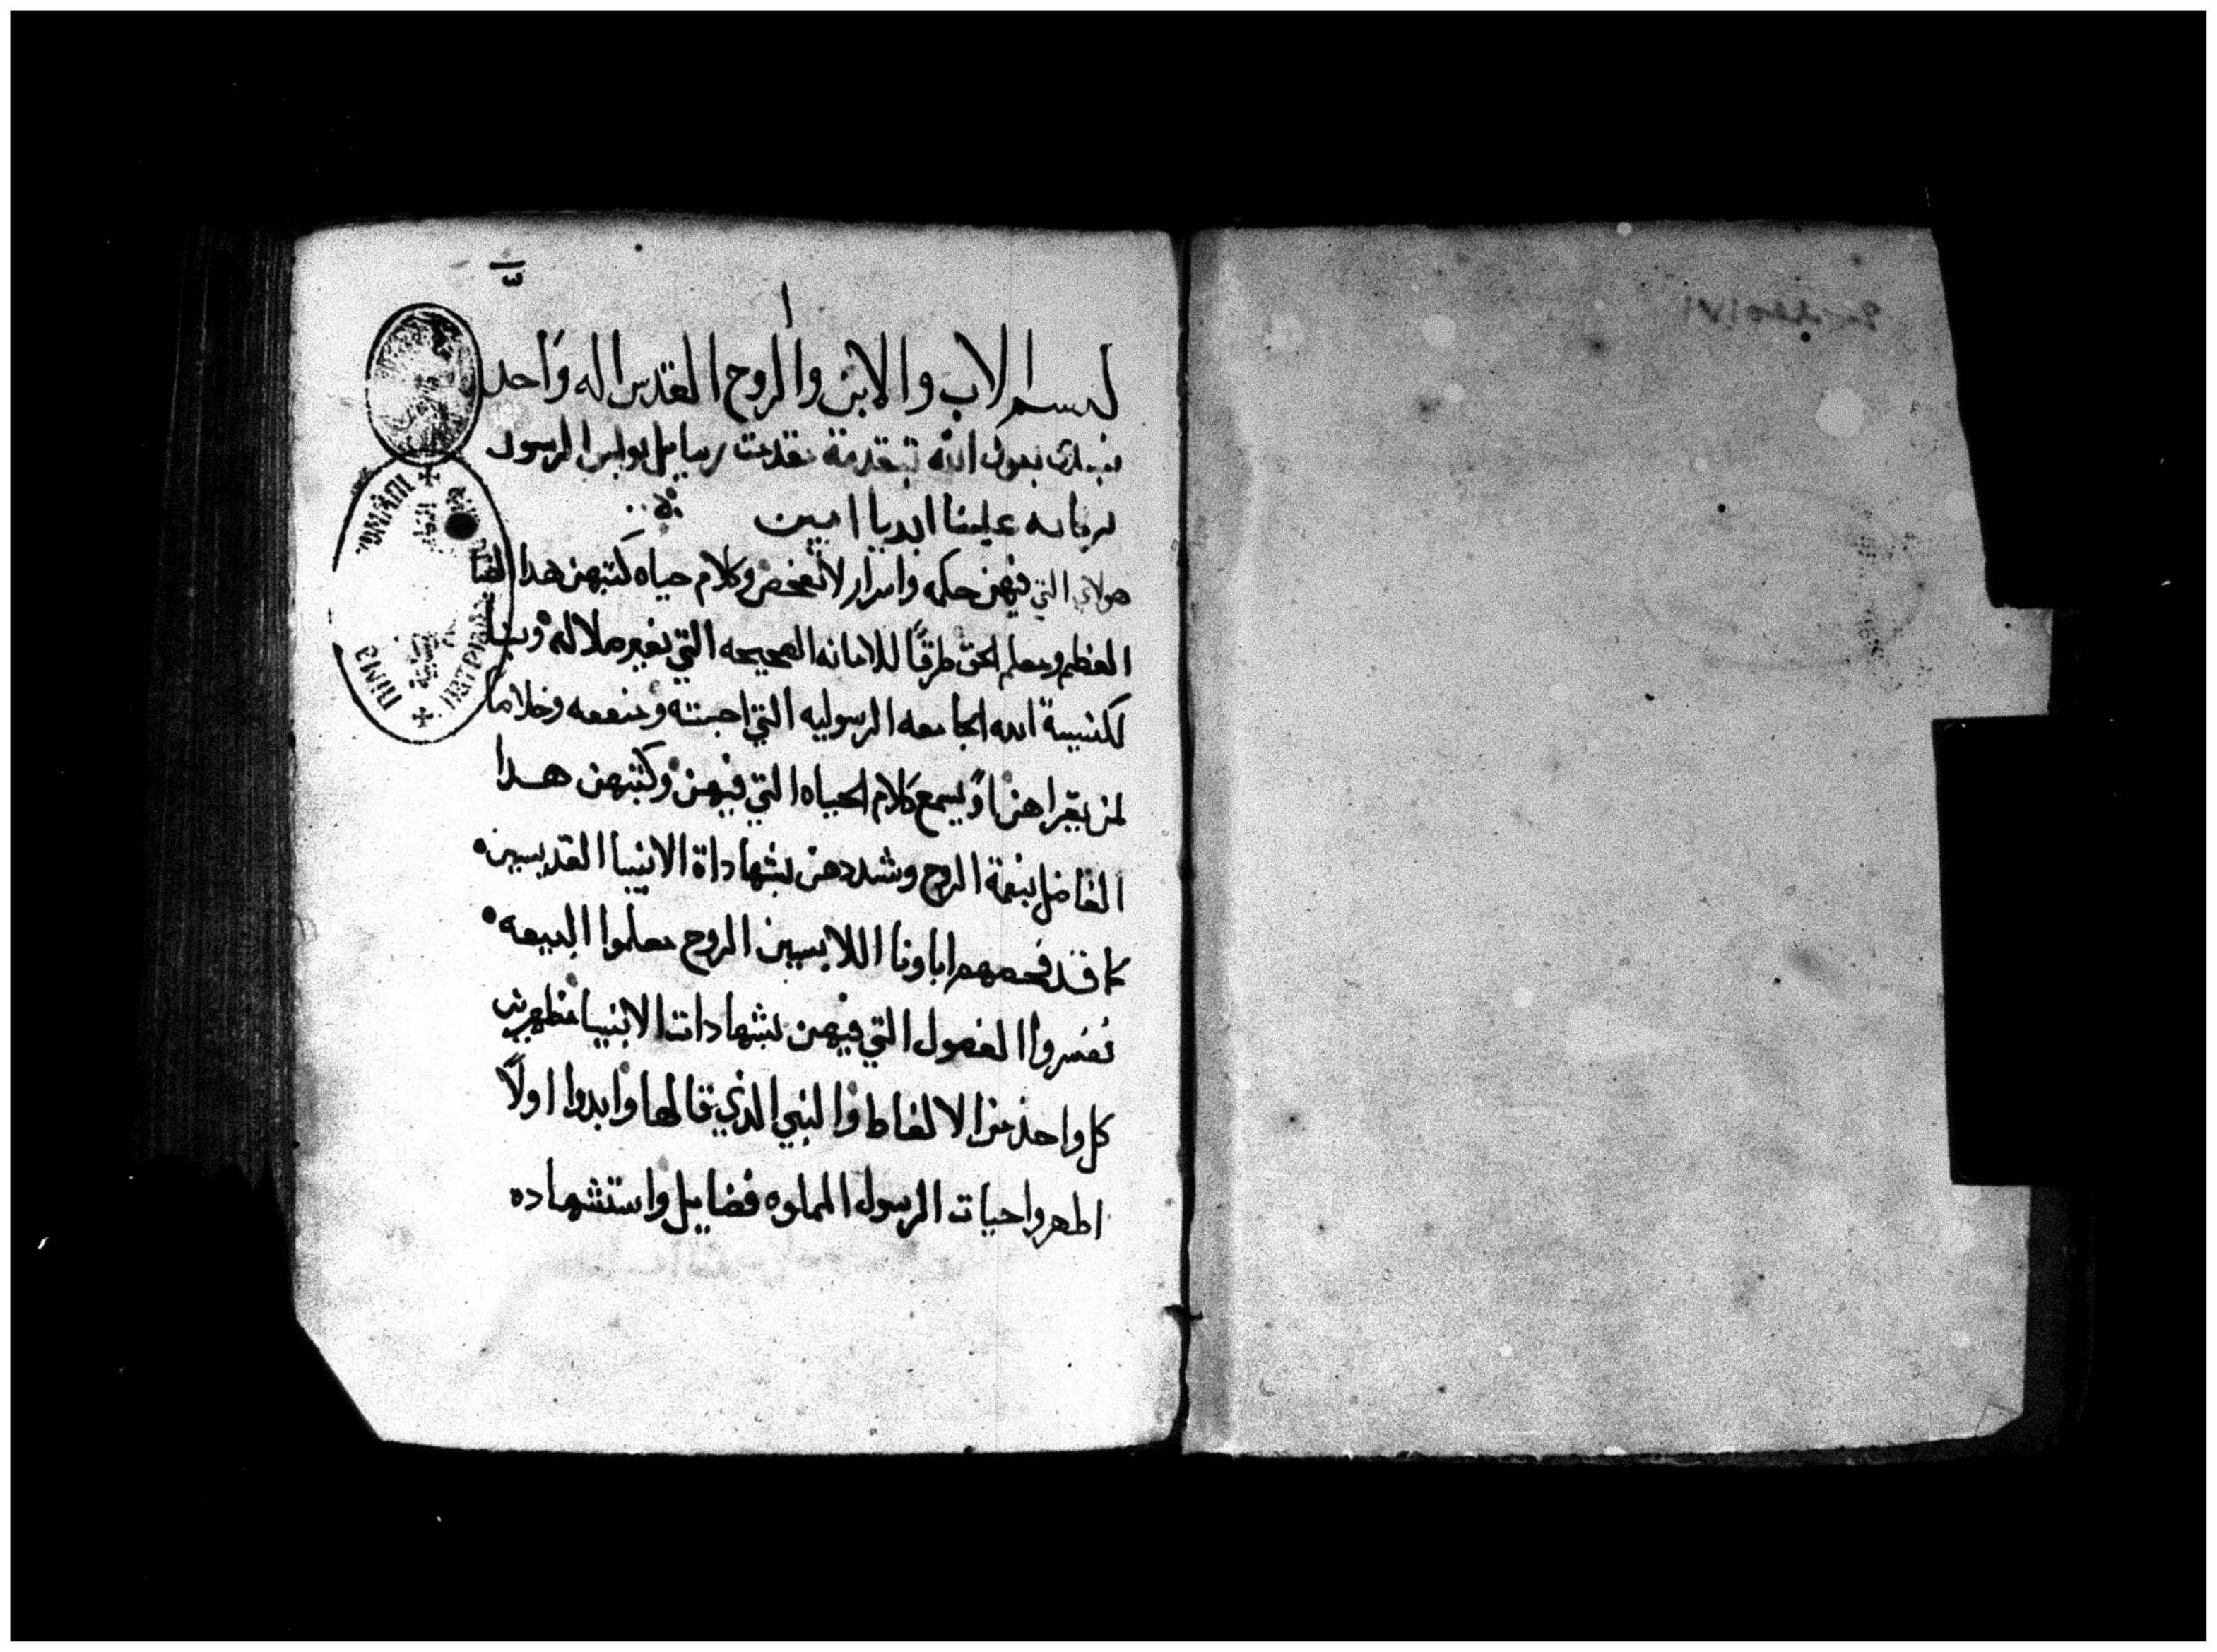 بسم الاب والابن والروح القدس اله واحد
نبتدي بعون الله بتقدمة تقدمت رسايل بولس الرسول
بركاته علينا ابديا امين
هولاي التي فيهن حكمه واسرار لا تفحص وكلام حياه كتبهن هدا
العظيم ومعلم الحق طرقًا للامانه الصحيحه التي بغير ملاله
لكنيسة الله الجامعه الرسوليه التي احبته ومنفعه وخلاصا
لمن يقراهن او يسمع كلام الحياه التي فيهن وكتبهن هدا
الفاضل بنعمة الروح وشددهن بشهاداة الانبيا القديسين
كما قد فحصهم اباونا اللابسين الروح معلموا البيعه
نفسروا الفصول التي فيهن بشهادات الانبيا مظهرين
كل واحد من الالفاط والنبي الدي قالها وابدوا اولاً
اطهروا حيات الرسول المملوه فضايل واستشهاده